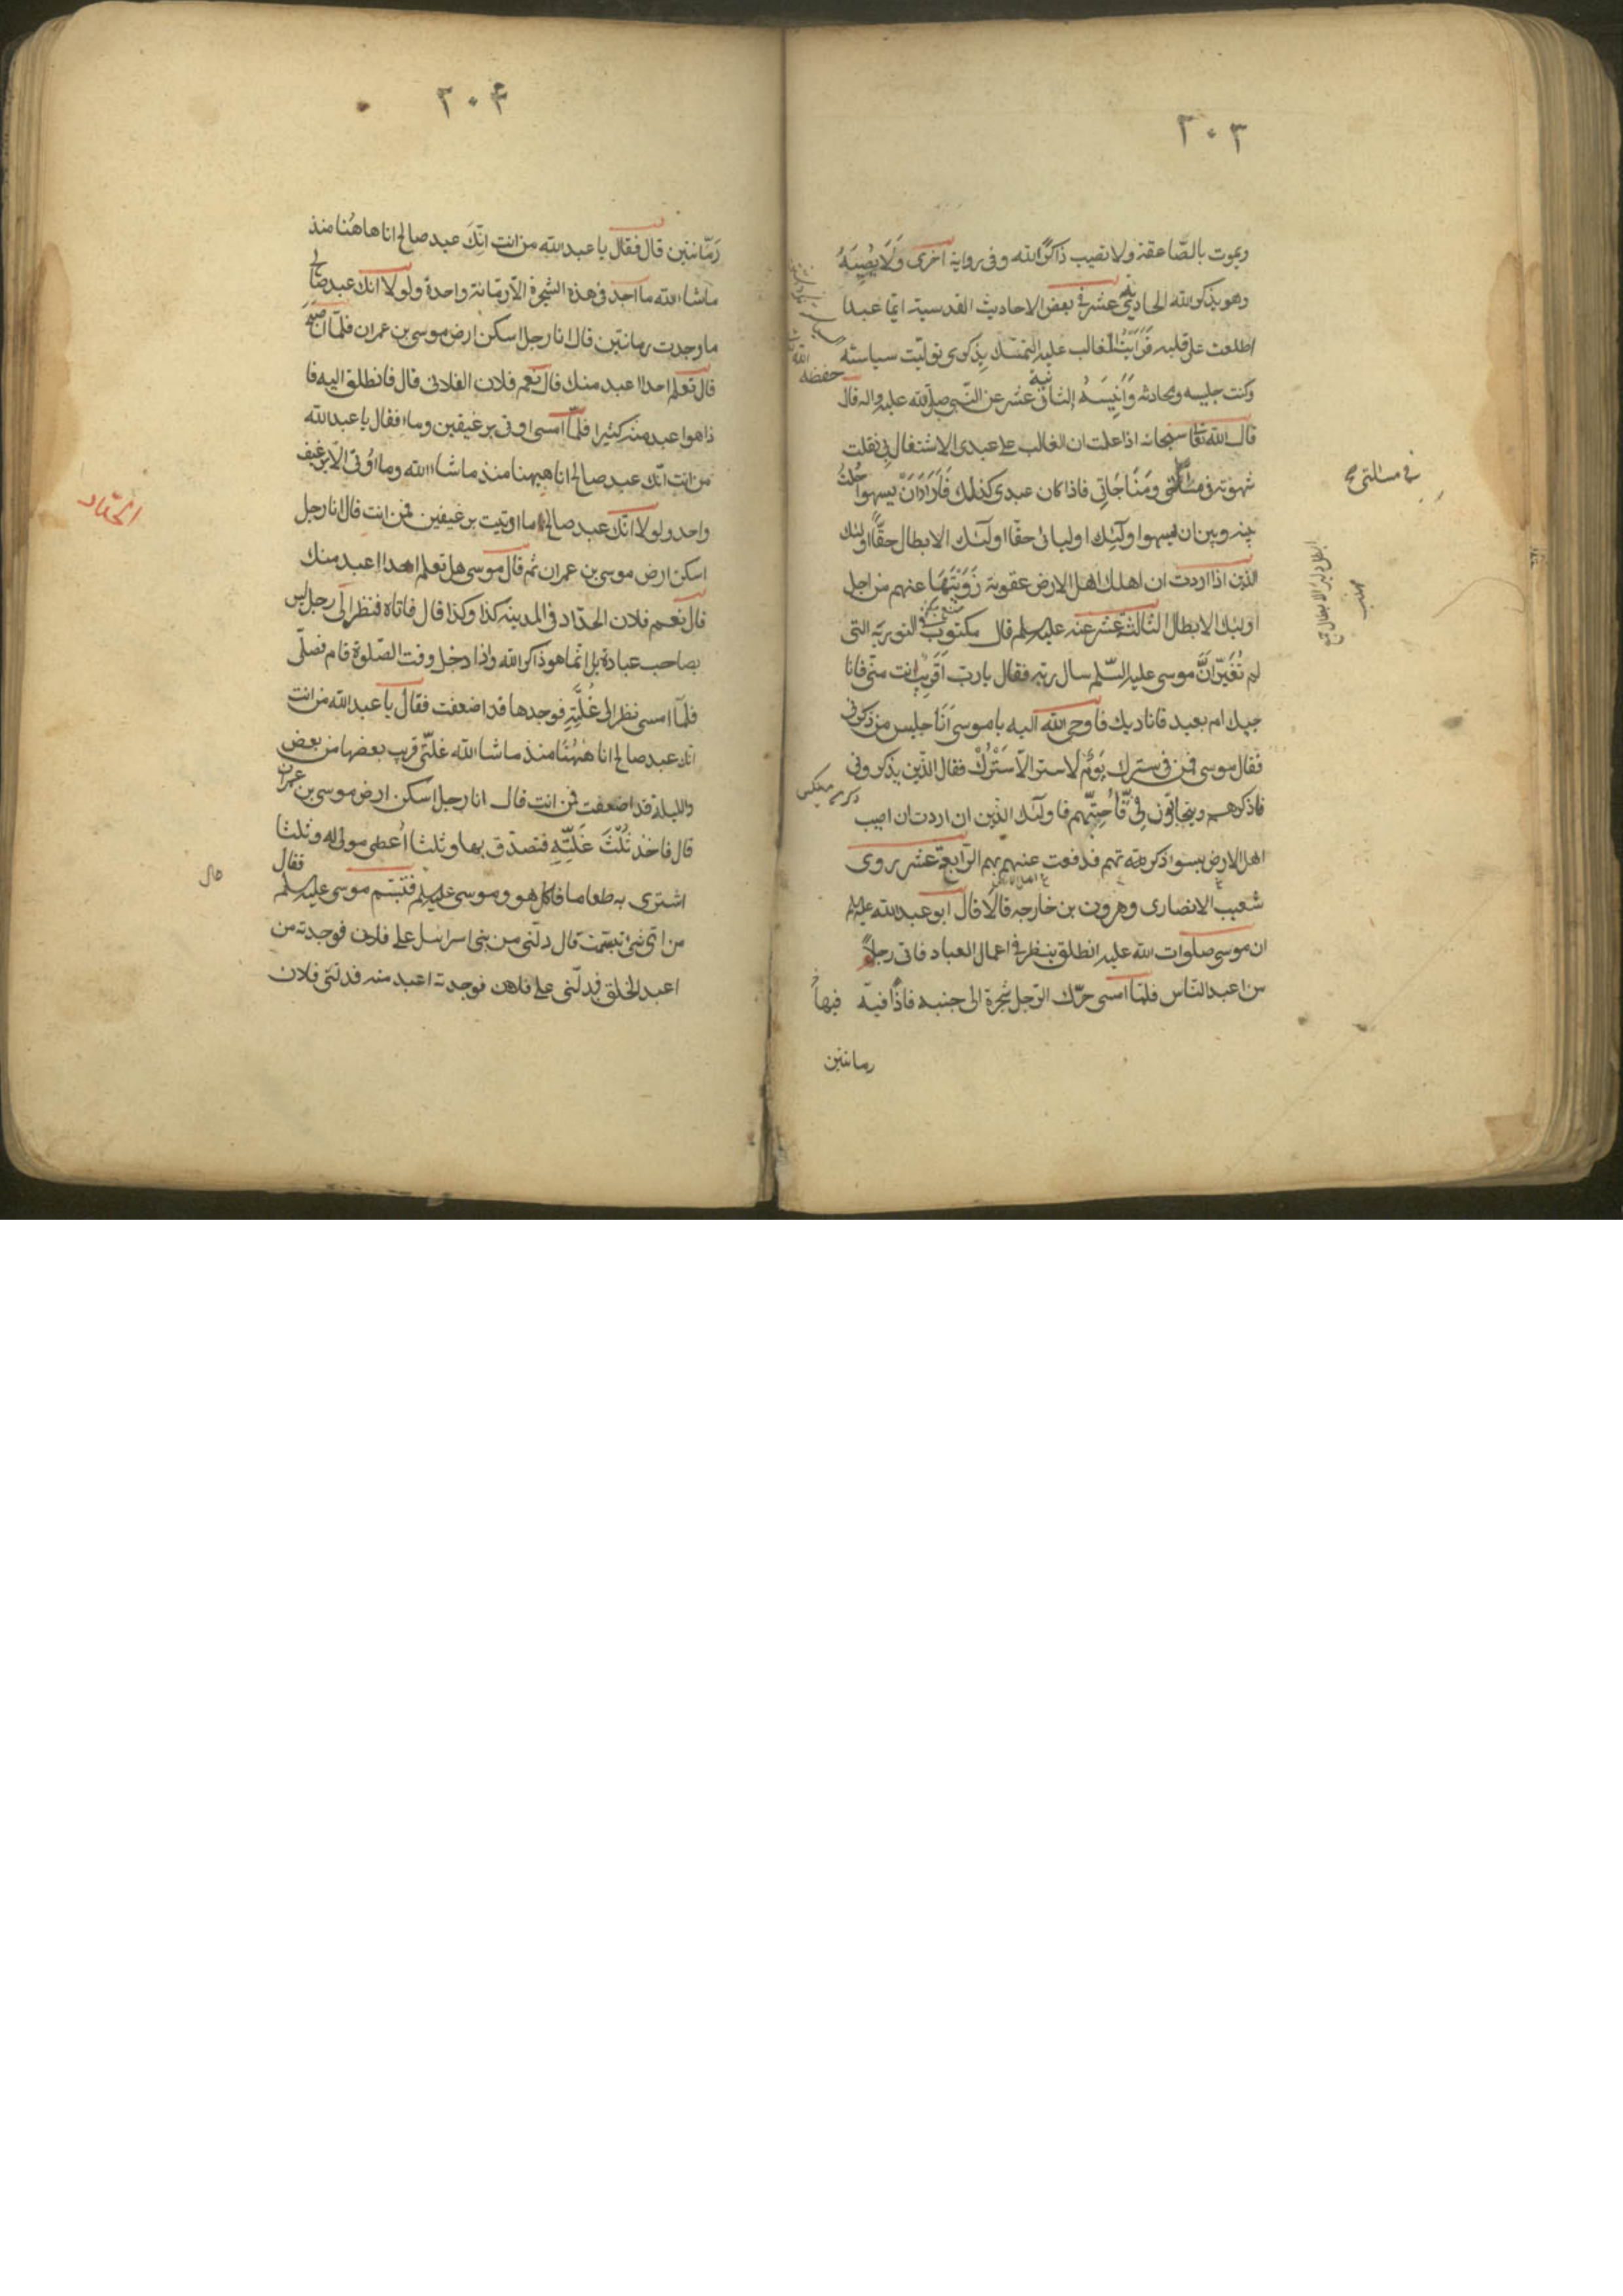 ٢٠٣
ويموت بالصّاعقة ولا تصيب ذاكرًا لله وفى رواية اخرى ولا يصيبه
وهو يذكر الله الحادية عشر فى بعض الاحاديث القدسية ايّما عبد
اطلعت على قلبه فرأيت الغالب عليه التمسّك بذكرى توليّت سياسته
وكنت جليسه ومحادثه وَاَنيسَهُ الثانية عشر عن النّبى صلى الله عليه واله قال
قال الله تعالى سبحانه اذا علمت ان الغالب على عبدى الاشتغال بى نقلت
شهوته فى مسألتى ومُنَاجَاتِى فاذا كان عبدى كذلك فَاَرَادَ اَنْ يسهو حُلْتُ
بينه وبين ان يسهو اولئك اوليائى حقّا اولئك الابطال حقًّا اولئك
الذين اذا اردت ان اهلك اهل الارض عقوبة زَوَيْتُهَا عنهم من اجل
اولئك الابطال الثالثة عشر عنه عليه السلم قال مكتوب فى التورية التى
لم تُغَيّر اَنَّ موسى عليه السّلم سال ربّه فقال يا ربّ اَقَرِيبٌ انت منّى فانا
جيك ام بعيد فاناديك فاوحى الله اليه يا موسى اَنَا جليس من ذكرنى
فقال موسى فمن فى سترك يَوْمَ لا ستر الّا سَتْرُكْ فقال الّذين يذكرونى
فاذكرهم ويتحابّون فِىَّ فَاُحِبُّهم فاولئك الذين ان اردت ان اصيب
اهل الارض بسوء ذكرتهم فدفعت عنهم بهم الرّابعة عشر روى
شعيب الانصارى وهرون بن خارجه قالَا قال ابو عبد الله عليه السلم
ان موسى صلوات الله عليه انطلق ينظر فى اعمال العباد فاتى رجلًا
من اعبد النّاس فلمّا امسى حرّك الرّجل شجرة الى جنبه فاذًا فيه فيها
رمانتين
فى مسالتى
حفظه
الله
٢٠۴
رَمّانتين قال فقال يا عبد الله من انت انّكَ عبد صالح انا هاهُنا منذ
ماشاء الله ما اجد فى هذه الشجرة الّا رمّانة واحدة ولولا انّك عبد صالح
ما وجدت رمانتين قال انا رجل اسكن ارض موسى بن عمران فلمّا اصبح
قال تعلم احدا اعبد منك قال نعم فلان الفلانى قال فانطلق اليه فا
ذا هو اعبد منه كثيرا فلمّا امسى اوتى برغيفين وماء فقال يا عبد الله
من انت انّك عبد صالح انا هيهنا منذ ماشاء الله وما اوُتى الّا برغيف
واحد ولولا انّك عبد صالح ما اوتيت برغيفين فمن انت قال انا رجل
اسكن ارض موسى بن عمران ثم قال موسى هل تعلم احدا اعبد منك
قال نعم فلان الحدّاد فى المدينه كذا وكذا قال فاتاه فنظر الى رجل ليس
بصاحب عبادة بل انّما هو ذاكر الله واذا دخل وقت الصّلوة قام فصلّى
فلمّا امسى نظر الى غُلّتِهِ فوجدها قد اضعفت فقال يا عبد الله من انت
انّك عبد صالح انا هٰهُنَا منذ ماشاء الله غلّتى قريب بعضها من بعض
والليلة قد اضعفت فمن انت قال انا رجل اسكن ارض موسى بن عمران
قال فاخذ ثُلُثَ غَلَّتِهِ فتصدّق بها وثلثا اُعطى مولى له وثلثا
اشترى به طعاما فاكل هو وموسى عليه السلم فتبسّم موسى عليه السلم فقال
من اىّ شئ تبسّمت قال دلّنى من بنى اسرائيل على فلان فوجدته من
اعبد الخلق فدلّنى على فلان فوجدته اعبد منه فدلّنى فلان
الحدّاد